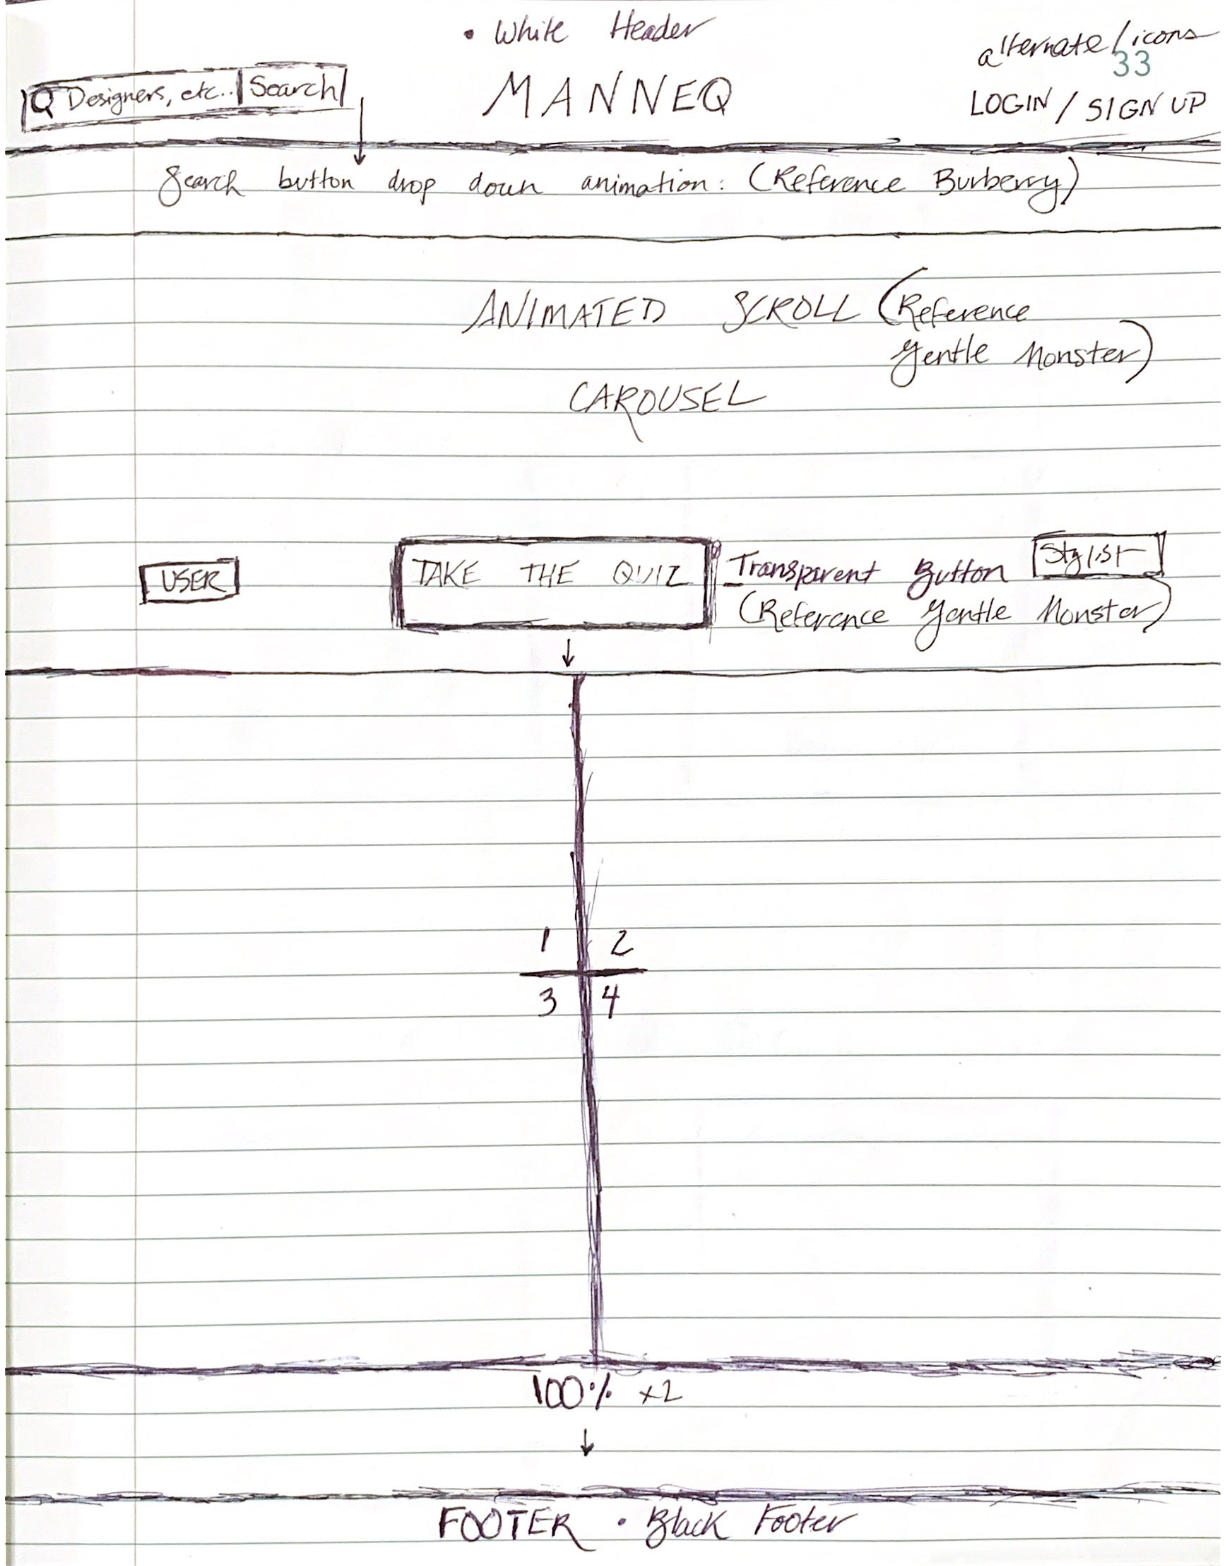 • White Header
alternate/icons
33
Q Designers, etc.. Search
MANNEQ
LOGIN / SIGN UP
Search button drop down animation: (Reference Burberry)
ANIMATED SCROLL (Reference
Gentle Monster)
CAROUSEL
USER
TAKE THE QUIZ
Transparent Button
Stylist
(Reference Gentle Monster)
1 2
3 4
100% x2
FOOTER • Black Footer